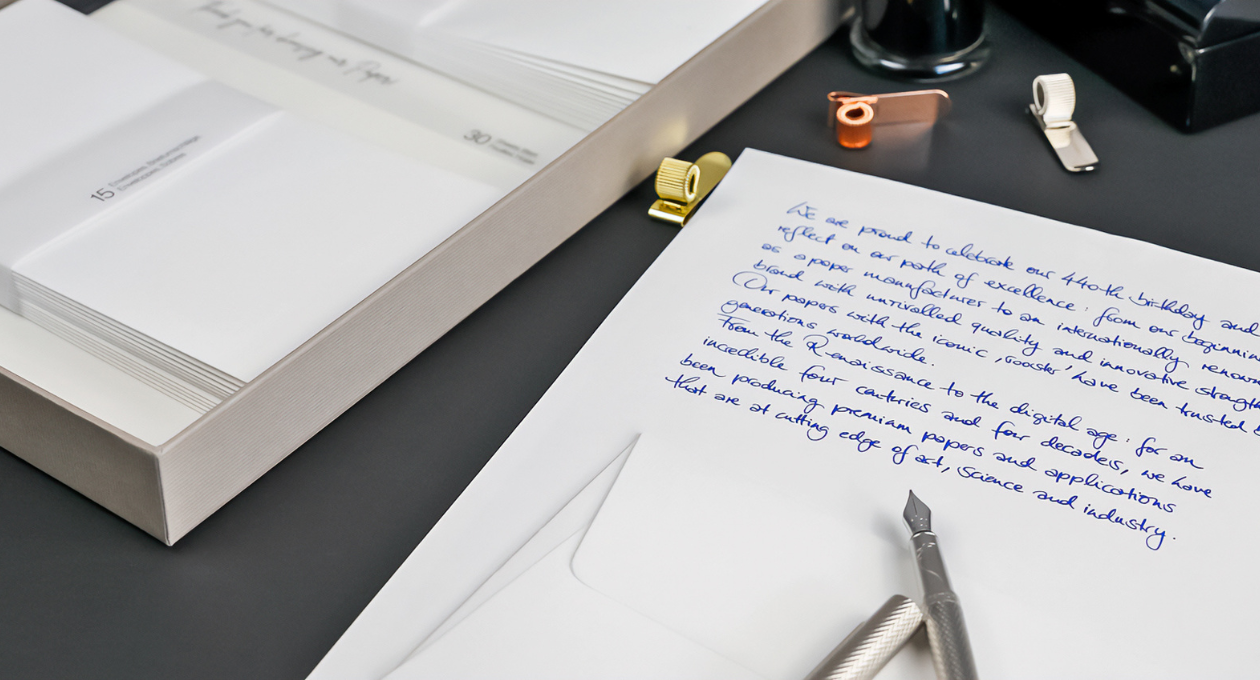 Thank you for buying our Papers
30
15 Envelopes
We are proud to celebrate our 440th birthday and
reflect on our path of excellence: from our beginning
as a paper manufacturer to an internationally renown
brand with unrivalled quality and innovative strength
Our papers with the iconic ‚rooster' have been trusted b
generations worldwide.
From the Renaissance to the digital age: for an
incredible four centuries and four decades, we have
been producing premium papers and applications
that are at cutting edge of art, science and industry.